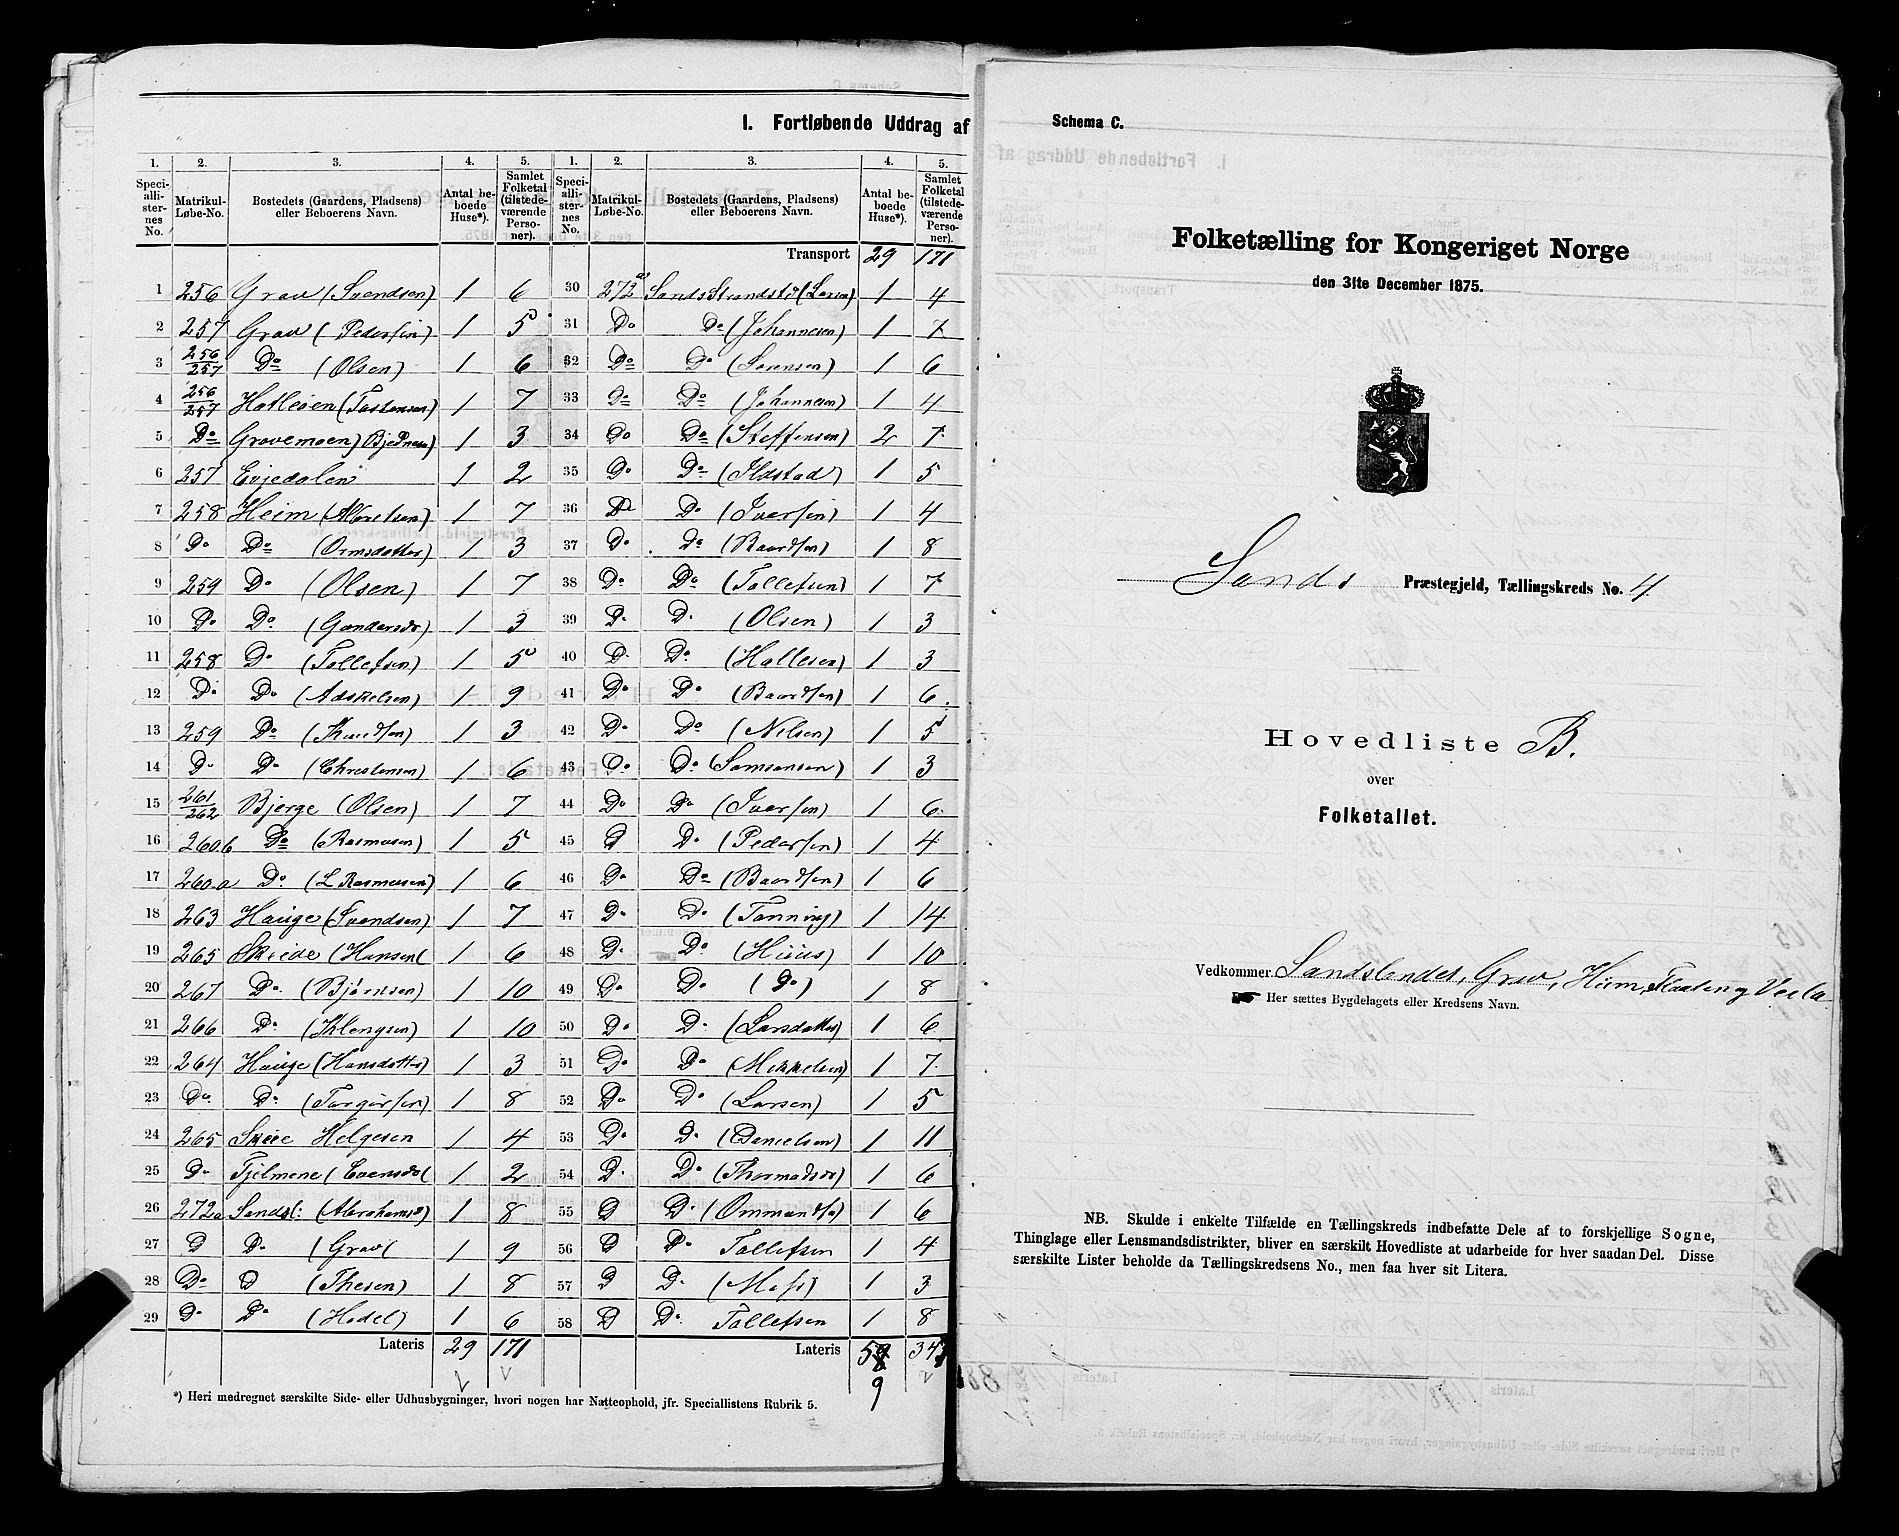 I. Fortløbende Uddrag af
1. 2. 3. 4. 5. 1. 2. 3. 4. 5.
Speciallisternes No. Matrikul-Løbe-No. Bostedets (Gaardens, Pladsens) eller Beboerens Navn. Antal beboede Huse*). Samlet Folketal (tilstedeværende Personer). Speciallisternes No. Matrikul-Løbe-No. Bostedets (Gaardens, Pladsens) eller Beboerens Navn. Antal beboede Huse*). Samlet Folketal (tilstedeværende Personer).
Transport 29 171
1 256 Grav (Svendsen) 1 6 30 272 a Sands Strandsto (Larsen) 1 4
2 257 Grav (Pedersen) 1 5 31 Do Do (Johannesen) 1 7
3 256/257 Do (Olsen) 1 6 32 Do Do (Sorensen) 1 6
4 256/257 Hatleøen (Tostensen) 1 7 33 Do Do (Johannesen) 1 4
5 Do Gravemoen) 1 3 34 Do Do (Steffensen) 2 7
6 257 Eojedalen 1 2 35 Do Do (Ilostad) 1 5
7 258 Heim 1 7 36 Do Do (Iversen) 1 4
8 Do Do (Ormsdatter) 1 3 37 Do Do (Baardsen) 1 8
9 259 Do (Olsen) 1 7 38 Do Do (Tollefsen) 1 7
10 Do Do (Gundersdr) 1 3 39 Do Do (Olsen) 1 3
11 258 Do (Tollefsen) 1 5 40 Do Do (Hallesen) 1 3
12 Do Do (Adskelsen) 1 9 41 Do Do (Baardsen) 1 6
13 259 Do (Knudsen) 1 3 42 Do Do (Nilsen) 1 5
14 Do Do (Christensen) 1 6 43 Do Do (Samsonsen) 1 3
15 261/262 Bjerge (Olsen) 1 7 44 Do Do (Iversen) 1 6
16 260b Do (Rasmusen) 1 5 45 D Do (Pedersen) 1 4
17 260a Do (L Rasmusen) 1 6 46 Do Do (Baardsen) 1 6
18 263 Hauge (Svendsen) 1 7 47 Do Do (Tonning) 1 14
19 265 Skeide (Hansen( 1 6 48 Do Do (Huus) 1 10
20 267 Do (Bjørnsen) 1 10 49 Do Do (Do) 1 8
21 266 Do (Klengsen) 1 10 50 Do Do (Larsdatter) 1 6
22 264 Hauge (Hansdatter) 1 3 51 Do Do (Mekkelsen) 1 7
23 Do Do (Torgersen) 1 8 52 Do Do (Larsen) 1 5
24 265 Skeie Helgesen 1 4 53 Do Do (Danielsen) 1 11
25 Do Fjelmene (Evensdr( 1 2 54 Do Do (Thormodsdr) 1 6
26 272a Sandsl: (Abrahams) 1 8 55 D Do (Ommunds) 1 6
27 D Do (Grav( 1 9 56 D Do Tollefsen 1 4
28 Do D (Thesen) 1 8 57 D Do 1 3
29 Do Do (Hodel) 1 6 58 D Do Tollefsen 1 8
Lateris 29 171 Lateris 59 343
9
*) Heri medregnet særskilte Side- eller Udhusbygninger, hvori nogen har Natteophold, jfr. Speciallistens Rubrik 5.
Schema C.
Folketælling for Kongeriget Norge
den 31te December 1875.
Sands Præstegjeld, Tællingskreds No. 4
Hovedliste B.
over
Folketallet.
Vedkommer Sandslandet, Grav, Hiim,
Her sættes Bygdelagets eller Kredsens Navn.
NB. Skulde i enkelte Tilfælde en Tællingskreds indbefatte Dele af to forskjellige Sogne,
Thinglage eller Lensmandsdistrikter, bliver en særskilt Hovedliste at udarbeide for hver saadan Del. Disse
særskilte Lister beholde da Tællingskredsens No., men faa hver sit Litera.